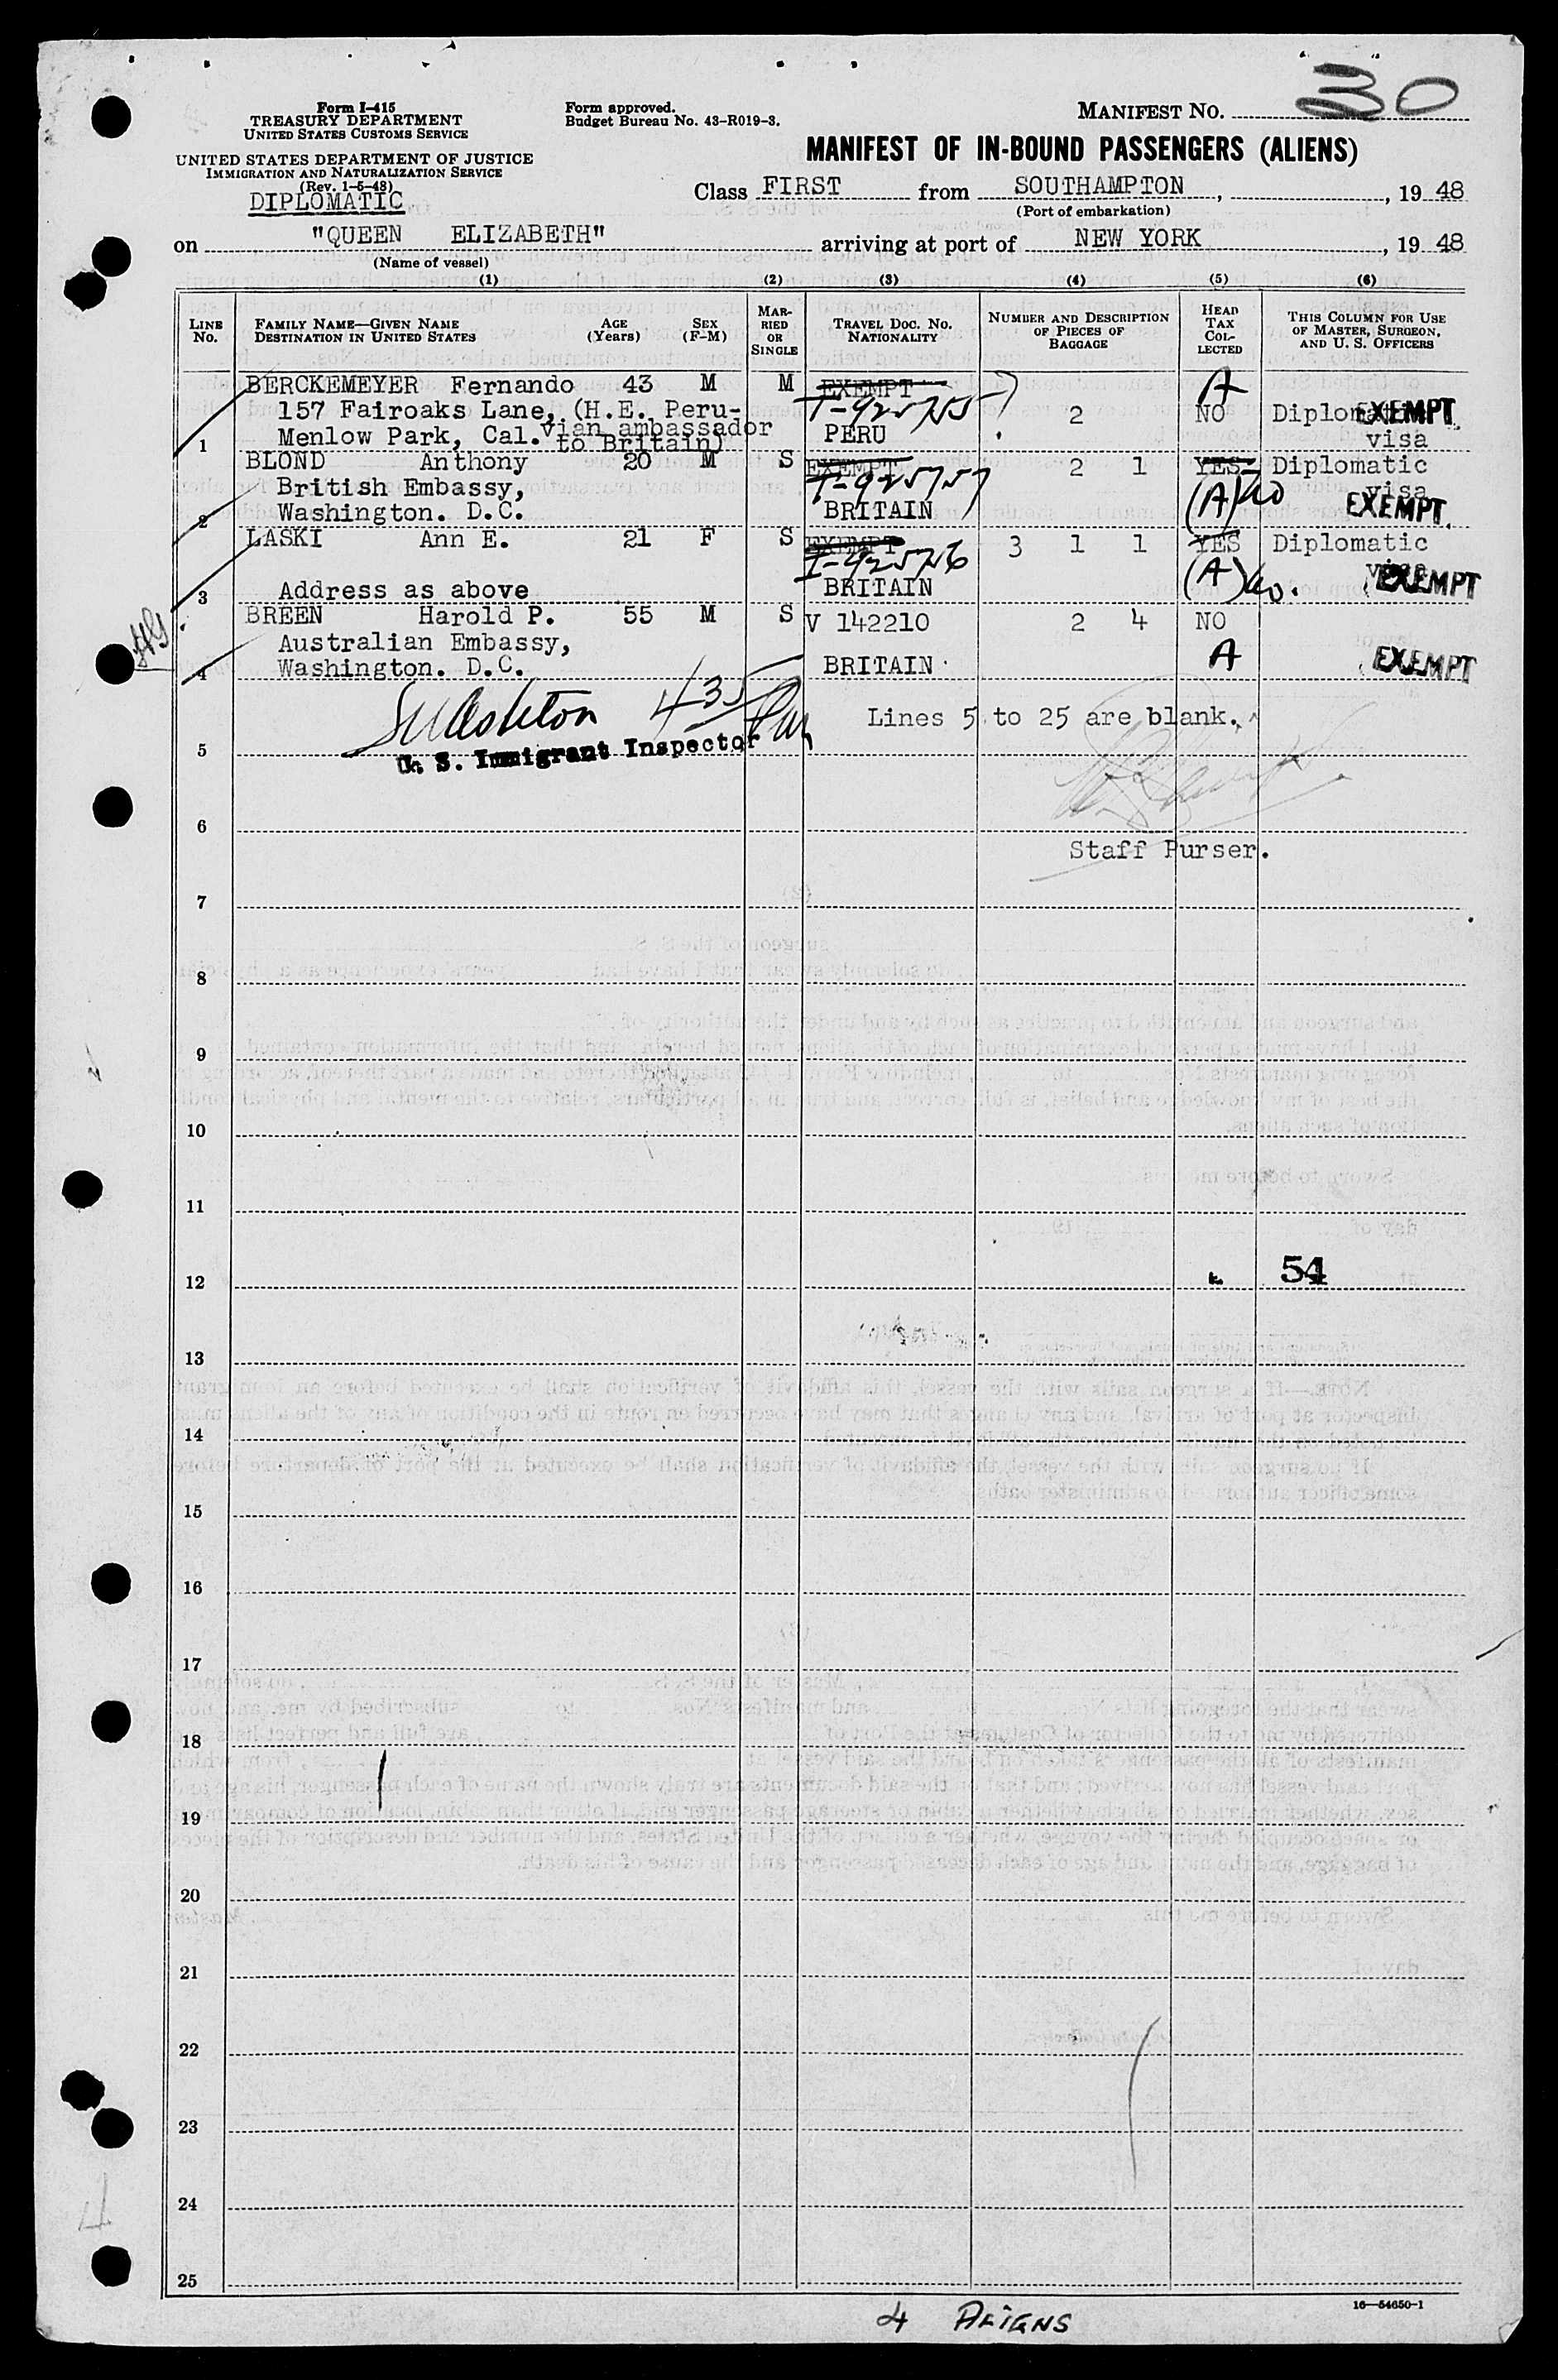 Form I-415
TREASURY DEPARTMENT
UNITED STATES CUSTOMS SERVICE
UNITED STATES DEPARTMENT OF JUSTICE
IMMIGRATION AND NATURALIZATION SERVICE
(Rev. 1-5-48)
DIPLOMATIC
Form approved.
Budget Bureau No. 43-R019-3.
MANIFEST NO. 30
MANIFEST OF IN-BOUND PASSENGERS (ALIENS)
Class FIRST from SOUTHAMPTON, , 19 48
(Port of embarkation)
on "QUEEN ELIZABETH" arriving at port of NEW YORK, 19 48
(Name of vessel)
(1) (2) (3) (4) (5) (6)
LINE NO.
FAMILY NAME—GIVEN NAME
DESTINATION IN UNITED STATES
AGE (Years)
SEX (F-M)
MARRIED OR SINGLE
TRAVEL DOC. NO.
NATIONALITY
NUMBER AND DESCRIPTION OF PIECES OF BAGGAGE
HEAD TAX COLLECTED
THIS COLUMN FOR USE OF MASTER, SURGEON, AND U. S. OFFICERS
BERCKEMEYER Fernando 43 M M EXEMPT A
157 Fairoaks Lane, (H.E. Peru- 2 NO Diplomatic EXEMPT
1 Menlow Park, Cal. vian ambassador to Britain) PERU visa
BLOND Anthony 20 M S EXEMPT 2 1 YES Diplomatic
British Embassy, (A) NO visa
2 Washington. D.C. BRITAIN EXEMPT.
LASKI Ann E. 21 F S EXEMPT 3 1 1 YES Diplomatic
(A) no. visa
3 Address as above BRITAIN EXEMPT
BREEN Harold P. 55 M S V 142210 2 4 NO
Australian Embassy, A
4 Washington. D.C. BRITAIN EXEMPT
435
Lines 5 to 25 are blank.
U. S. Immigrant Inspector
5
6
Staff Purser.
7
8
9
10
11
12
54
13
14
15
16
17
18
19
20
21
22
23
24
25
16—54650-1
4 ALIENS
4